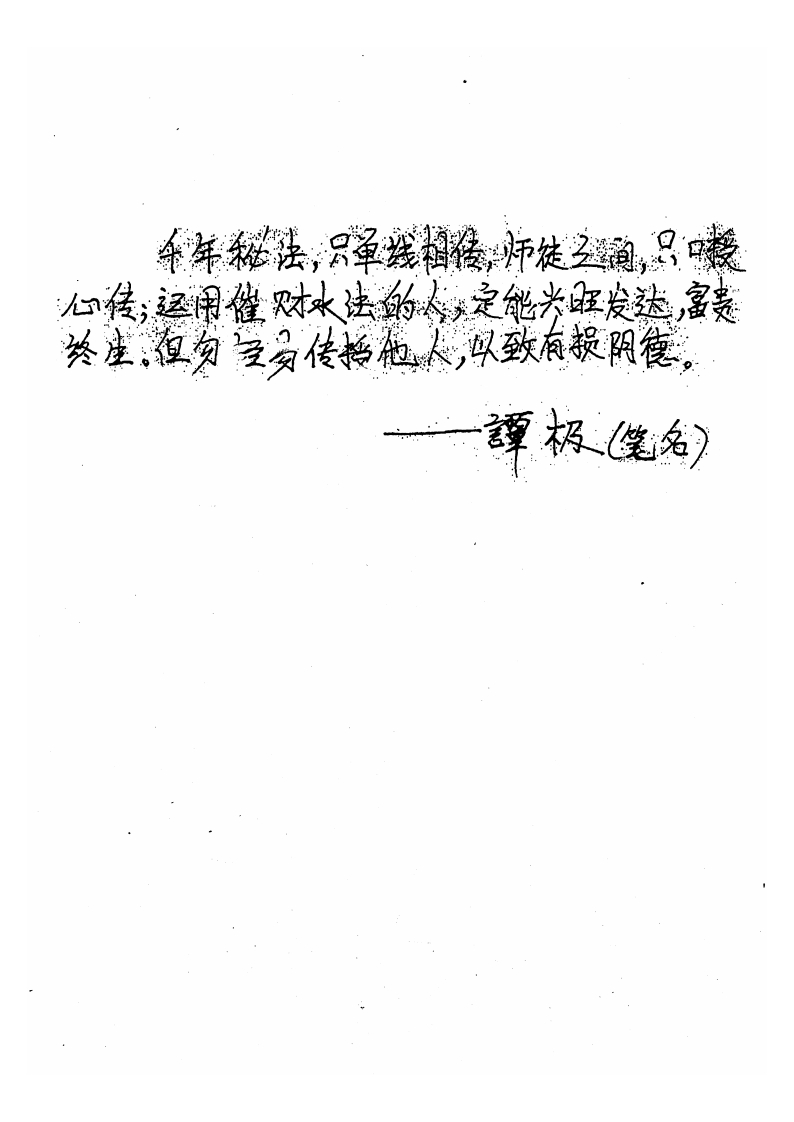 千年秘法,只单线相传,师徒之间,只口授
心传;运用催财水法的人,定能兴旺发达,富贵
终生。但勿轻易传播他人,以致有损阴德。
——譚极(笔名)